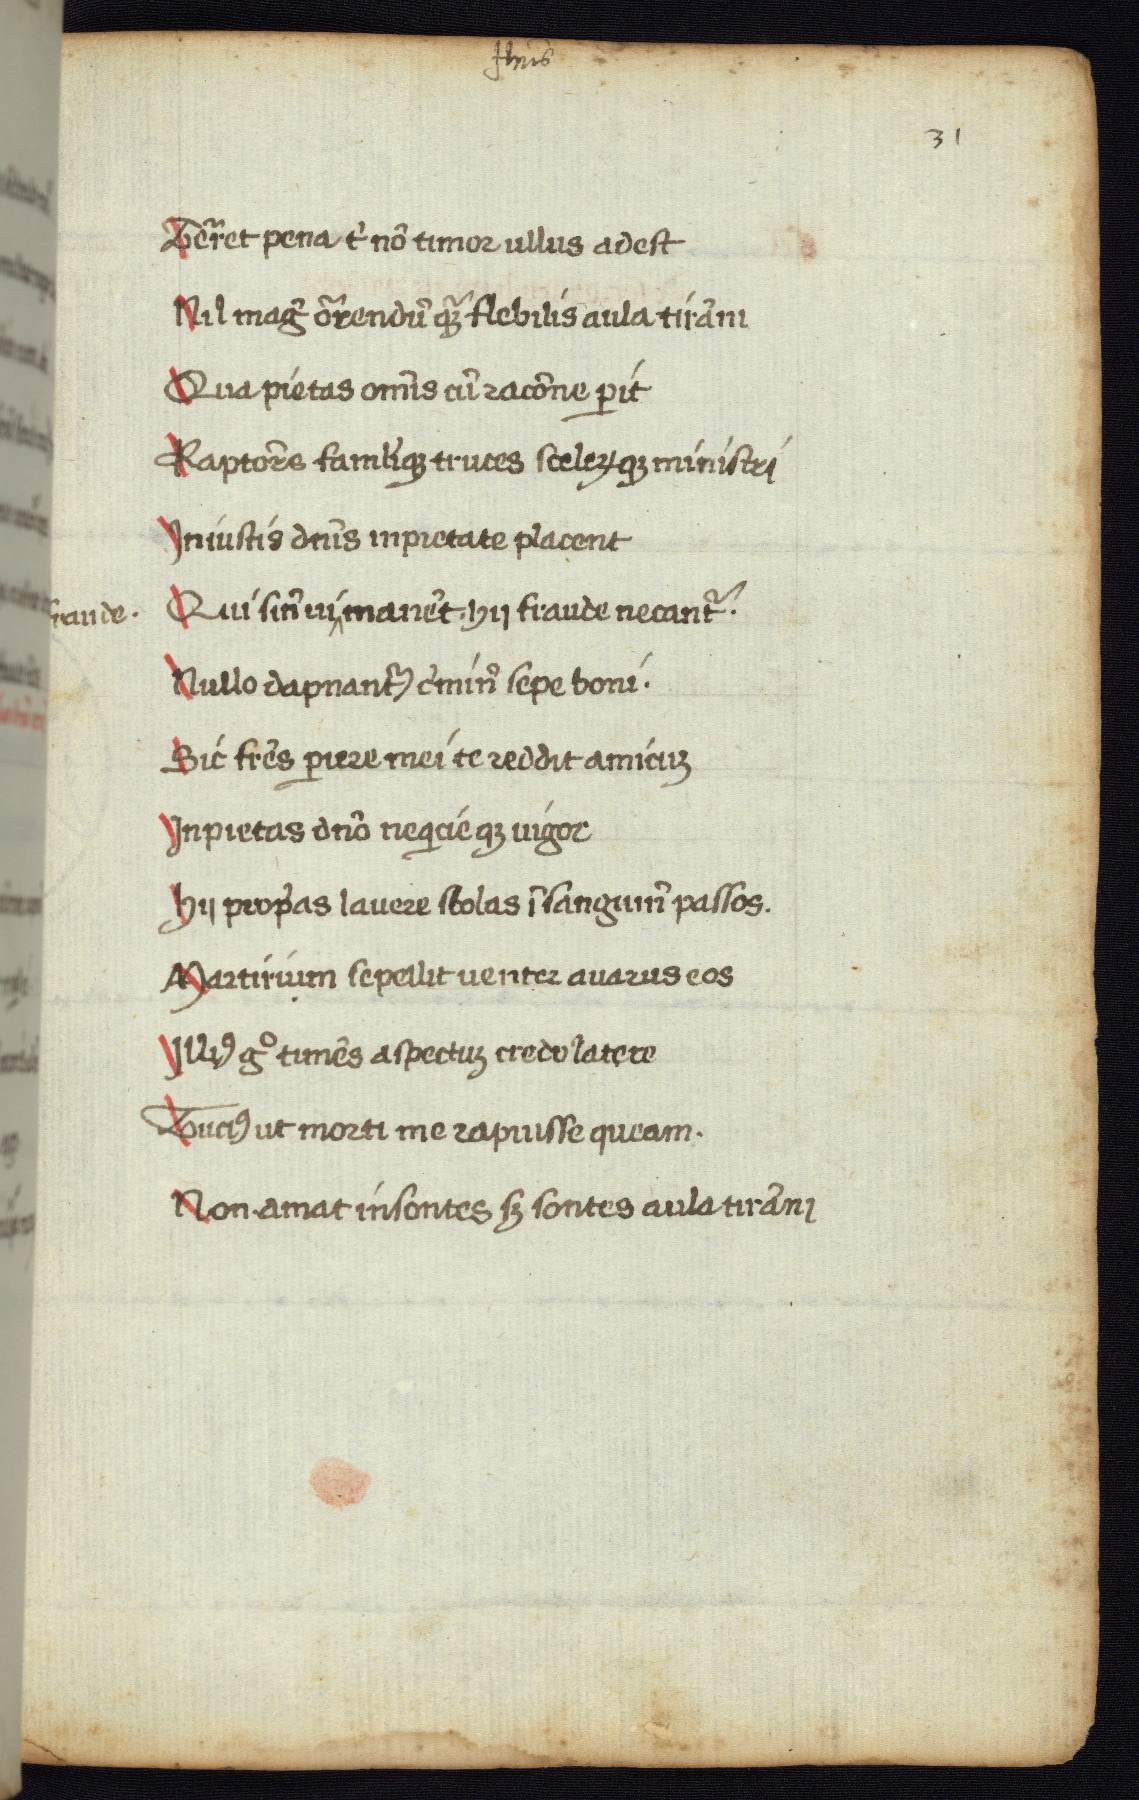 Jhus
31
Ter̃et pena t̾ nõ timor ullus adest
Nil mag̾ õrendũ qꝫ̃ flebilis aula tirãni
Qua pietas om̃is cũ racõne ꝑit
Raptor̃e famliqꝫ truces sceleꝝqꝫ ministri
Iniustis dñis inpietate placent
fraude.
Qui sin̾ ui manẽt. hij fraude necantᷣ.
Nullo dapnantᷣ c̾min̾ sepe boni.
Sic fr̃es ꝑiere mei te reddit amicuꝫ
Inpietas dño neqͥcie qꝫ uigor
Hij prop̾as lauere stolas ĩ sanguin̾ passos.
Martirium sepellit uenter auarus eos
Illiꝰ gͦ timẽs aspectuꝫ credo latere
Tuciꝰ ut morti me rapuisse queam.
Non amat insontes sꝫ sontes aula tirãni